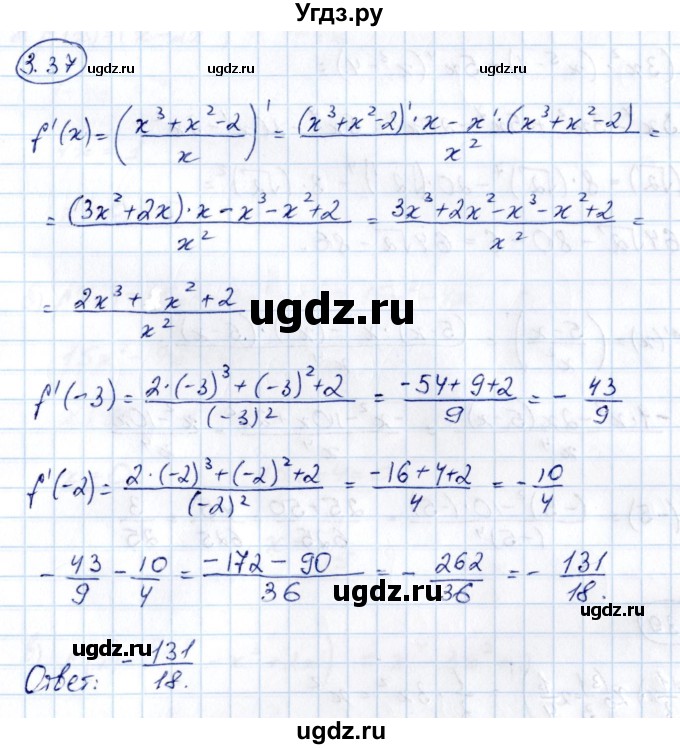 Угдз.ру
3.37 ugdz.ru ugdz.ru ugdz.ru
f'(x) = ((x³+x²-2)/x)' = ((x³+x²-2)'·x - x'·(x³+x²-2))/x² =
= ((3x²+2x)·x - x³ - x² + 2)/x² = (3x³+2x²-x³-x²+2)/x² =
= (2x³ + x² + 2)/x² ugdz.ru
f'(-3) = (2·(-3)³+(-3)²+2)/(-3)² = (-54+9+2)/9 = - 43/9
f'(-2) = (2·(-2)³+(-2)²+2)/(-2)² = (-16+4+2)/4 = - 10/4
- 43/9 - 10/4 = (-172 - 90)/36 = - 262/36 = - 131/18.
ugdz.ru ugdz.ru
Ответ: - 131/18.
ugdz.ru
ugdz.ru